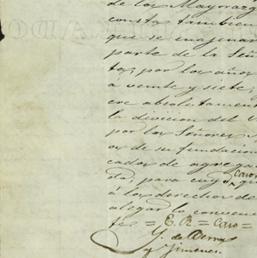 de los Mayorazg
consta tambien
que se enagenar
parte de la Señ
ta; por los años
a veinte y siete,
ece absolutamen
la division del V
por los Señores
or de su fundacion
cador de agregac
ta, para cuyo
caro
á los derechos de
alegar lo convene
te = E. R = caro =
y Jimenez